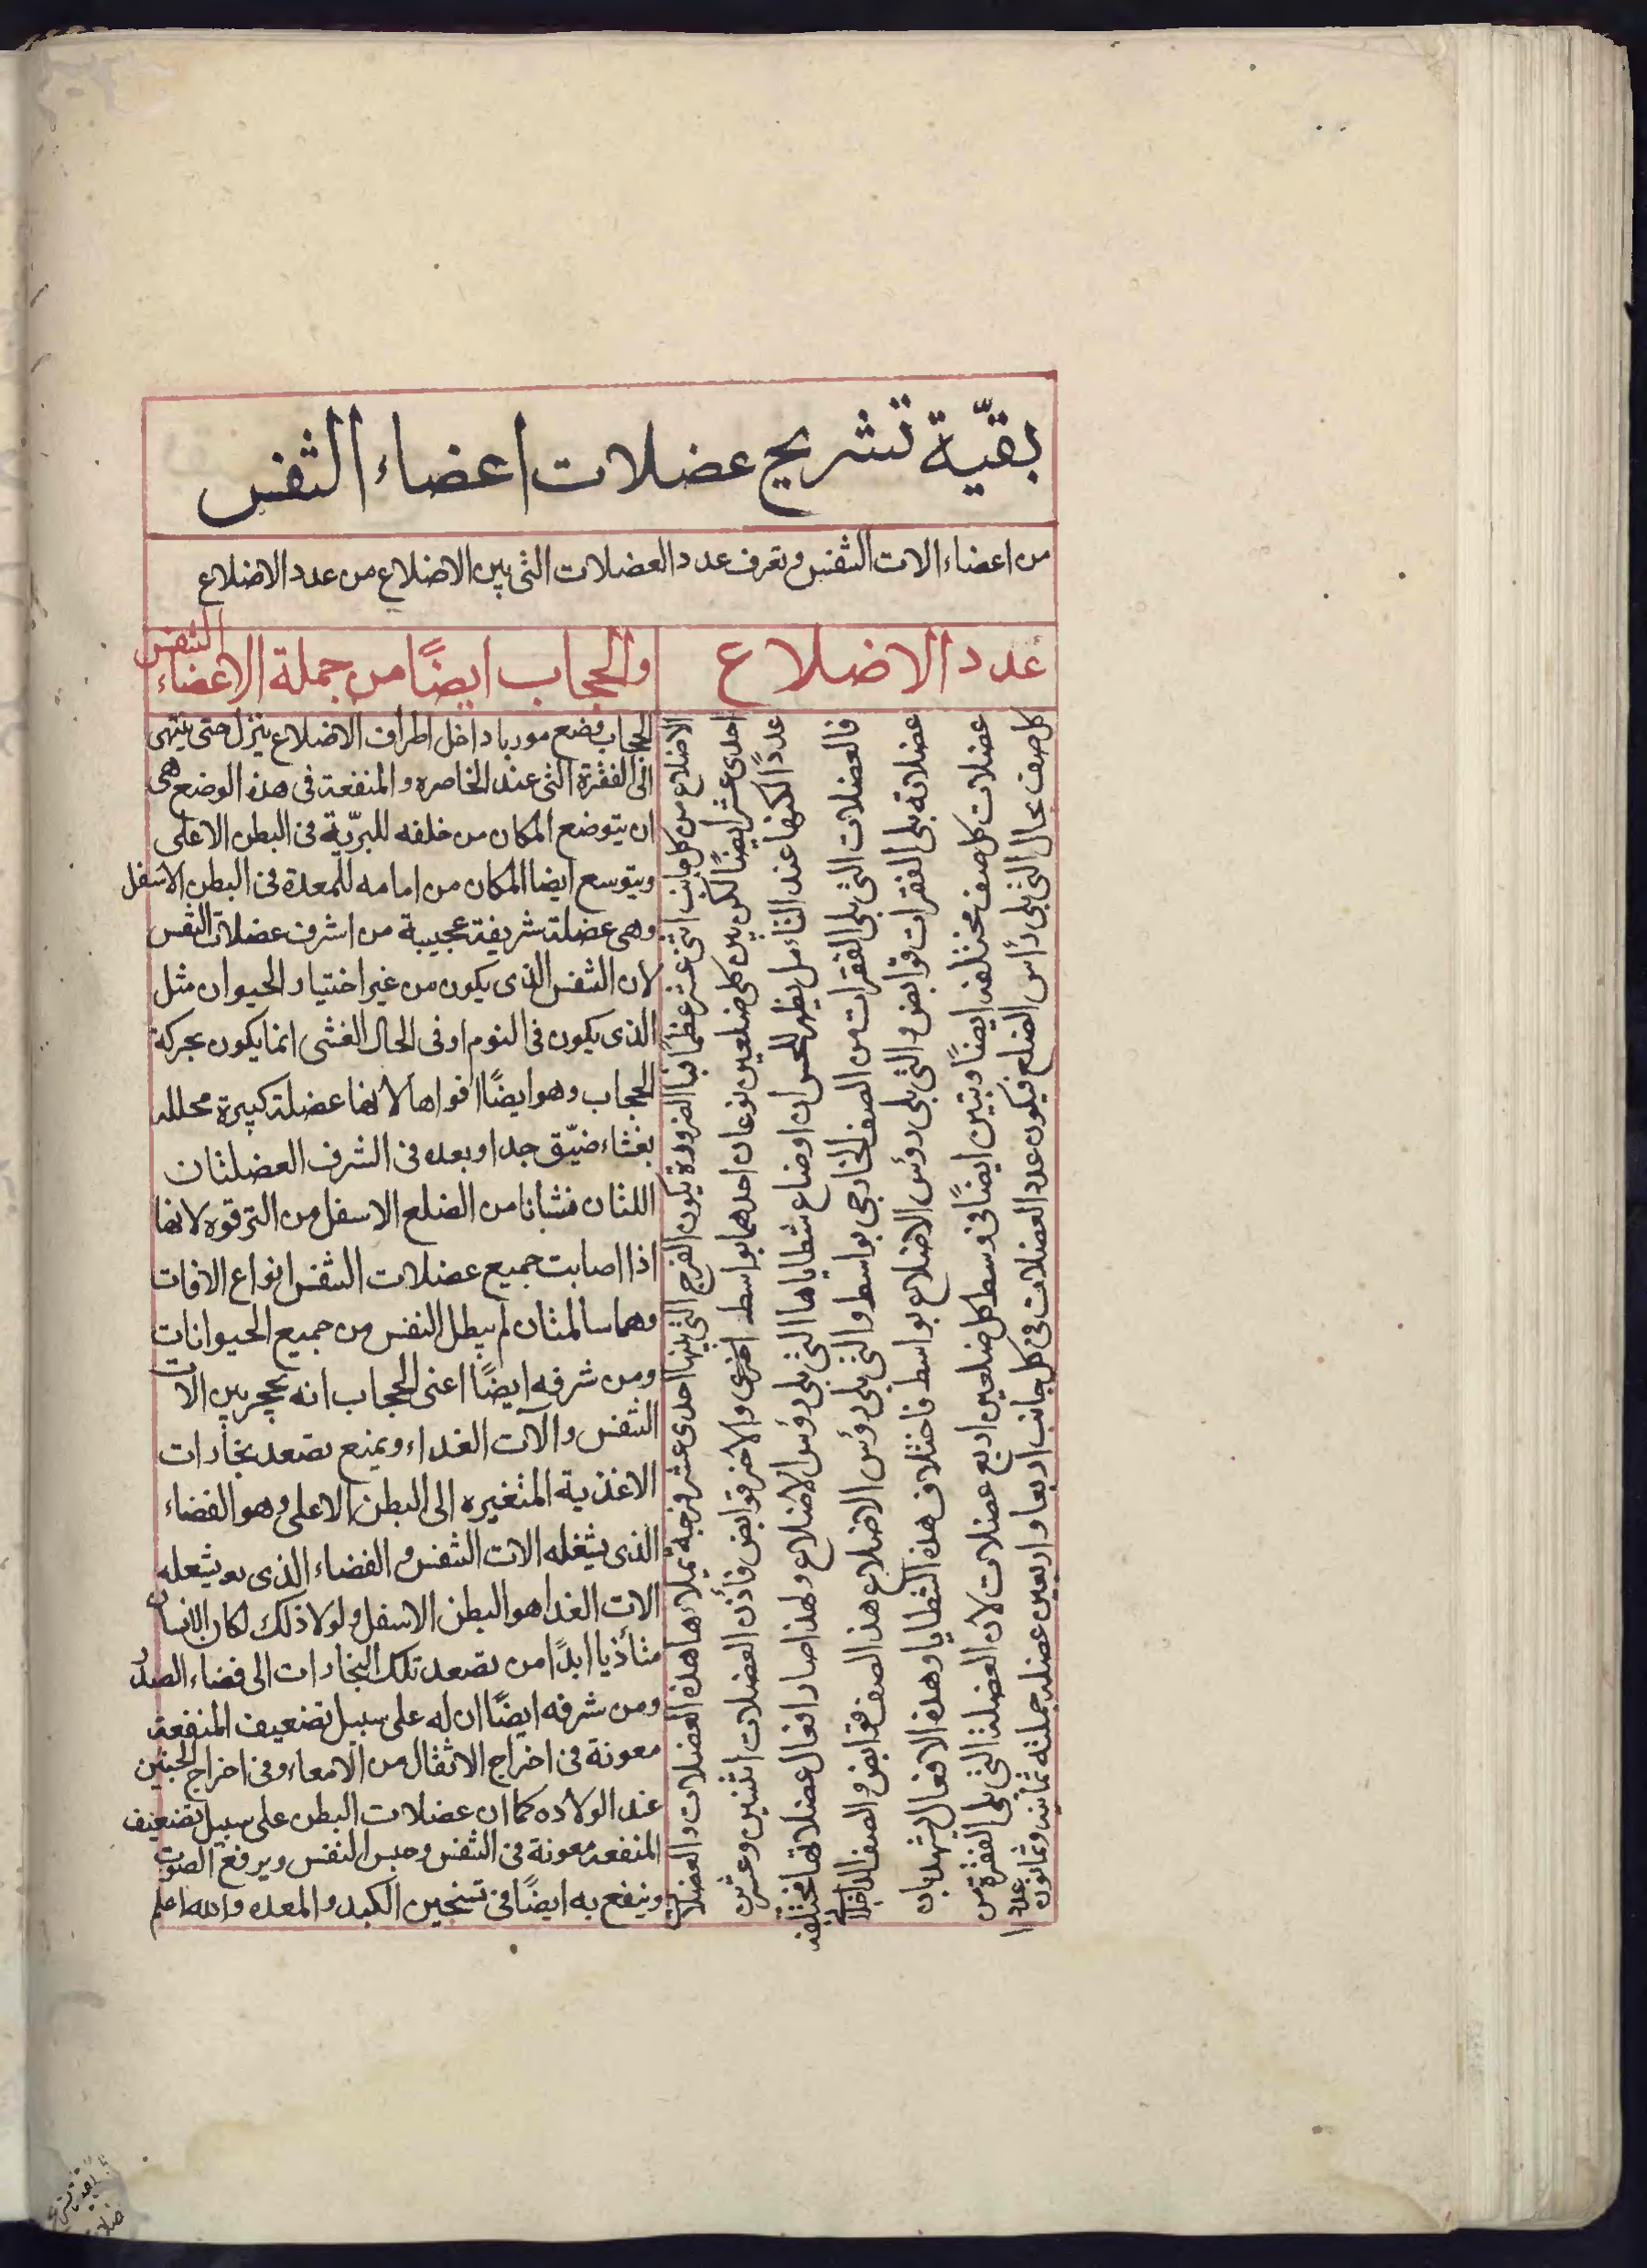 بقيّة تشريح عضلات اعضاء التفس
من اعضاء الات التفس وتعرف عدد العضلات التى بين الاضلاع من عدد الاضلاع
عدد الاضلاع
والحجاب ايضًا من جملة الاعضاء التنفس
الاضلاع من كل جانب اثنى عشر عظمًا فبا الضرورة يكون الفرج التى بينها احدى عشر فرجه يملاءها هذه العضلات والعضلات
احدى عشر ايضًا لكن بين كل ضلعين نوعان احدهما بواسط اخرى والاخر قوابض فأذن العضلات اثنين وعشرين
عددًا لكنها عند التاءمل يظهر للحس ان اوضاع شظاياها التى يلى رؤس الاضلاع ولهذا صار افعال عضلاتها مختلفه
فالعضلات التى يلى الفقرات من الصف الخارجى بواسط والتى يلى رؤس الاضلاع هذ الصف قوابض والصف الداخلانى
عضلاته يلى الفقرات قوابض والتى يلى رؤس الاضلاع بواسط فاختلاف هذه الشظايا وهذه الافعال يشهد بان
عضلات كل صف مختلفه ايضًا وبتين ايضًا فى وسط كل ضلعين اربع عضلات لان العضلة التى يلى الفقرة من
كل صف بحال التى يلى رأس الضلع فيكون عدد العضلات فى كل جانب اربعا واربعين عضله جملته ثمانيه وثمانون عددا
الحجاب وضع موربا داخل اطراف الاضلاع ينزل حتى ينتهى
الى الفقرة التى عند الخاصره والمنفعة فى هذه الوضع هى
ان يتوضع المكان من خلفه للبرّية فى البطن الاعلى
ويتوسع ايضا المكان من امامه للمعدة فى البطن الاسفل
وهى عضلة شريفة عجيبة من اشرف عضلات التفس
لان التفس الذى يكون من غير اختيار الحيوان مثل
الذى يكون فى النوم او فى الحال الغشى انما يكون بحركة
الحجاب وهو ايضًا اقواها لانها عضلة كبيرة مجلله
بغشاء ضيّق جدا وبعده فى الشرف العضلتان
اللتان منشانا من الضلع الاسفل من الترقوه لانها
اذا اصابت جميع عضلات التفس انواع الافات
وهما سالمتان لم يبطل النفس من جميع الحيوانات
ومن شرفه ايضًا اعنى الحجاب انه يحجر بين الات
التفس والآت الغداء ويمنع تصعد بخارات
الاغذية المتغيره الى البطن الاعلى وهو الفضاء
الذى يشغله الات التفس والفضاء الذى يشغله
الات الغدا هو البطن الاسفل ولولا ذلك لكان الانسان
متأذيا ابدًا من تصعد تلك البخارات الى فضاء الصدر
ومن شرفه ايضًا ان له على سبيل تضعيف المنفعة
معونة فى اخراج الاثقال من الامعاء وفى اخراج الجنين
عند الولاده كما ان عضلات البطن على سبيل تضعيف
المنفعة معونة فى التفس وحبس النفس ويرفع الصوت
وينفع به ايضًا فى تسخين الكبد والمعده والله اعلم